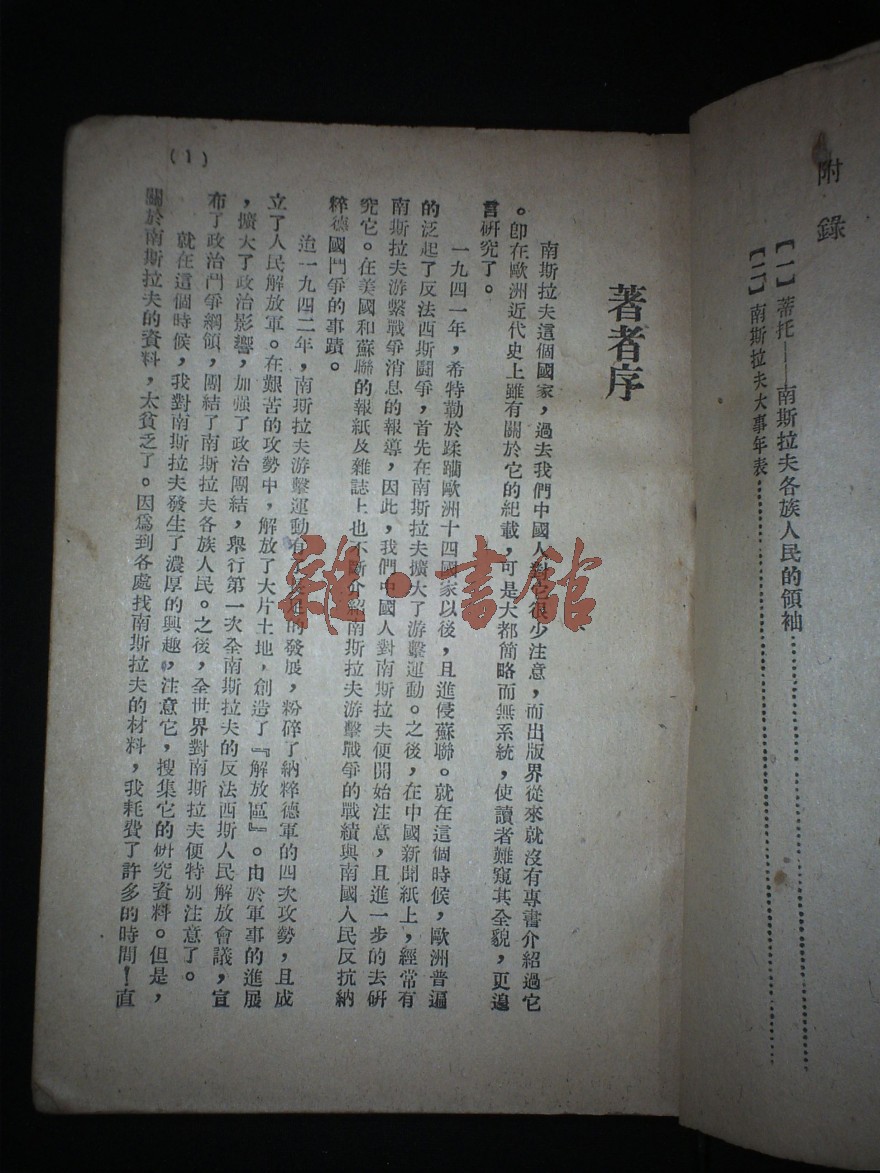 附錄
【一】蒂托——南斯拉夫各族人民的領袖
【二】南斯拉夫大事年表
著者序
南斯拉夫這個國家，過去我們中國人對它很少注意，而出版界從來就沒有專書介紹過它
。卽在歐洲近代史上雖有關於它的紀載，可是大都簡略而無系統，使讀者難窺其全貌，更遑
言研究了。
一九四一年，希特勒於蹂躪歐洲十四國家以後，且進侵蘇聯。就在這個時候，歐洲普遍
的泛起了反法西斯鬪爭，首先在南斯拉夫擴大了游擊運動。之後，在中國新聞紙上，經常有
南斯拉夫游擊戰爭消息的報導，因此，我們中國人對南斯拉夫便開始注意，且進一步的去研
究它。在美國和蘇聯的報紙及雜誌上也不斷介紹南斯拉夫游擊戰爭的戰績與南國人民反抗納
粹德國鬥爭的事蹟。
迨一九四二年，南斯拉夫游擊運動有的發展，粉碎了納粹德軍的四次攻勢，且成
立了人民解放軍。在艱苦的攻勢中，解放了大片土地，創造了『解放區』。由於軍事的進展
，擴大了政治影響，加强了政治團結，舉行第一次全南斯拉夫的反法西斯人民解放會議，宣
布了政治鬥爭綱領，團結了南斯拉夫各族人民。之後，全世界對南斯拉夫便特別注意了。
就在這個時候，我對南斯拉夫發生了濃厚的興趣，注意它，搜集它的研究資料。但是，
關於南斯拉夫的資料，太貧乏了。因爲到各處找南斯拉夫的材料，我耗費了許多的時間！直
(1)
雜·書館